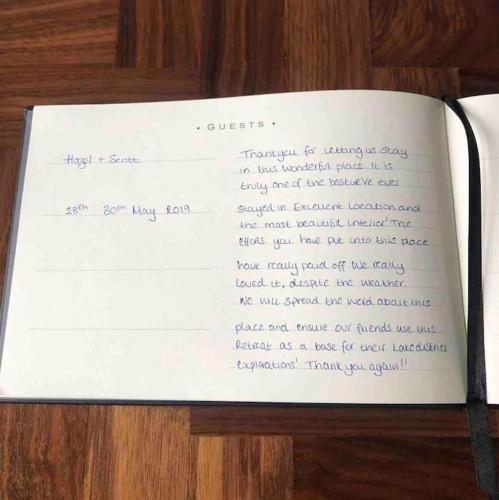 • GUESTS •
Hazel + Scott
28th - 30th May 2019
Thankyou for letting us stay
in this wonderful place. It is
truly one of the best we've ever
stayed in. Excellent Location and
the most beautiful interior! The
efforts you have put into this place
have really paid off. We really
loved it, despite the weather.
We will spread the word about this
place and ensure our friends use this
Retreat as a base for their Lake district
explorations! Thank you again!!